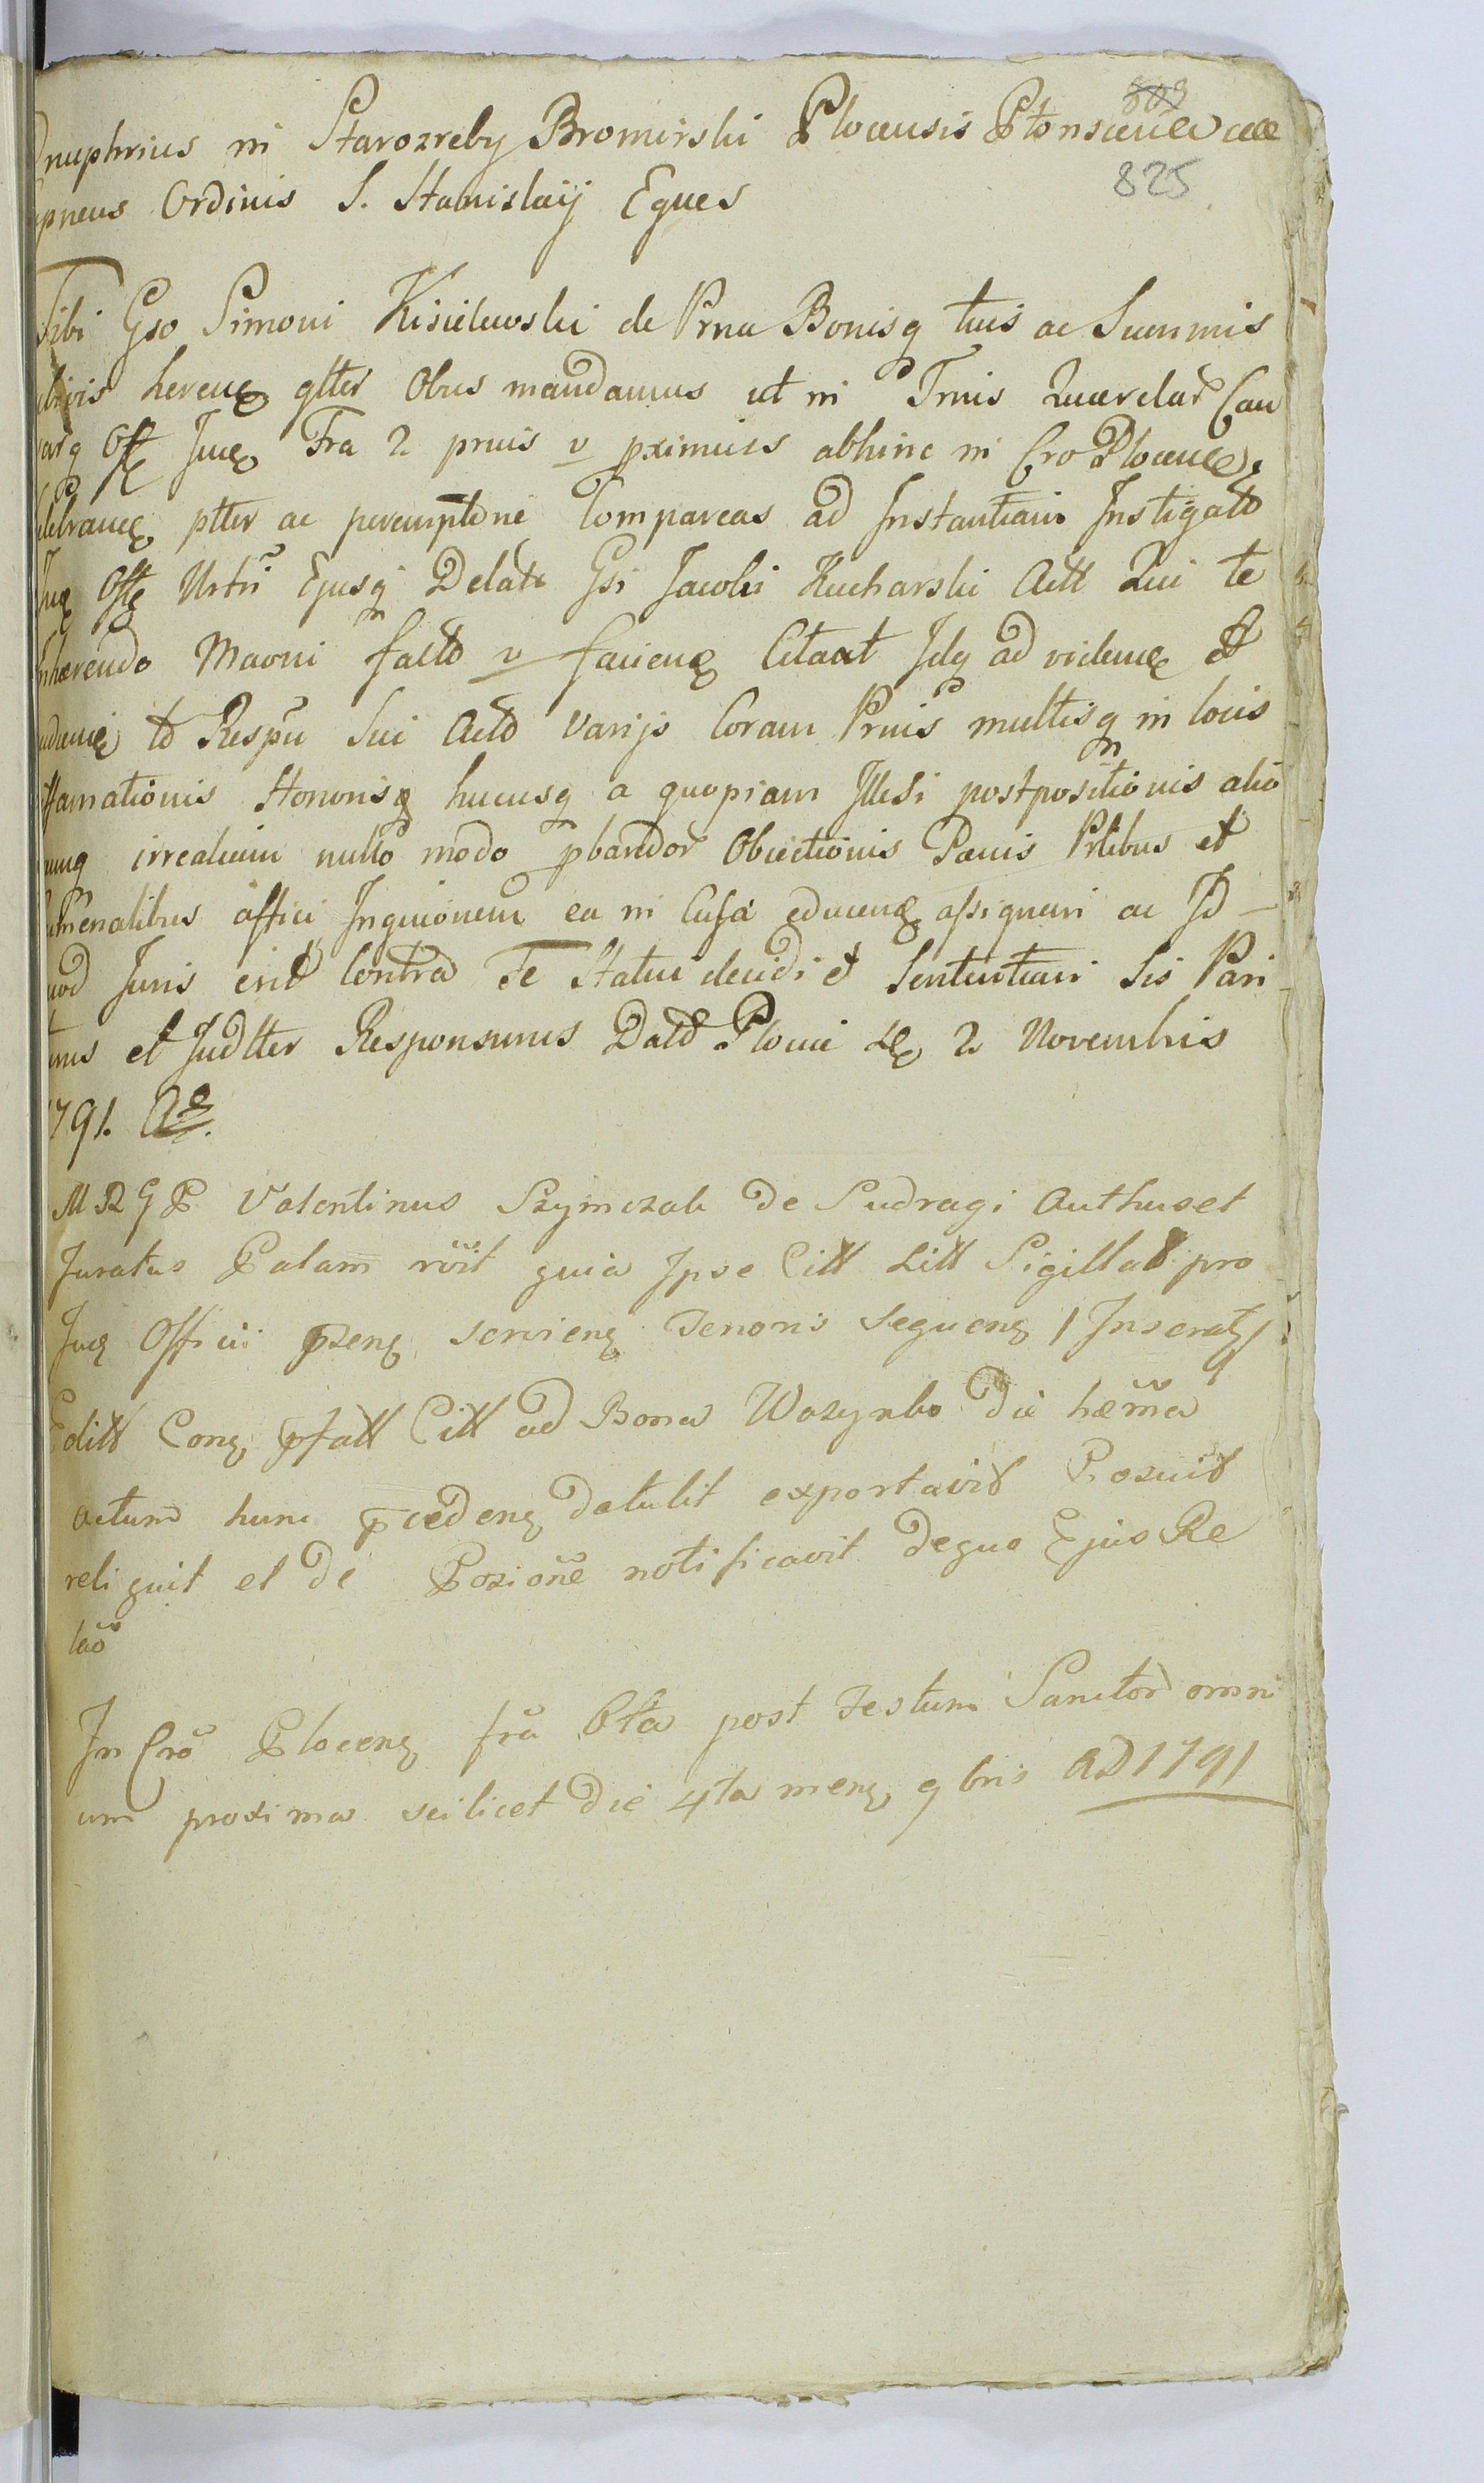 809
825
nuphrius in Starozreby Bromirski Plocensis Plonscen
pneus Ordinis S. Stanislaij Eques
Tibi Gso Simoni Kisielewski de Prna Bonisq tuis ac Summis
herenę gltter Obus mandamus ut in Trnis Querelar Cau
arq Off Juę Fra 2 prnis v pximius abhinc in Cro Plocenę
lebranę ptter ac peremptone Compareas ad Instantiam Instigato
Juę Offę Urtri Ejusq Delato Gsi Jacobi Kucharski Actt Qui te
nhærendo Maoni facto v facienę Citat Idq ad videnę et
to Respu sui Acto varijs Coram Prnis multisq in locis
ffamationis Honorisq hucusq a quopiam Illesi postpositionis alio
umq irrealium nullo modo pbandor Obiectionis Pænis Prlibus et
menalibus affici Inquionem ea in Cusa educenę assignari ac Id
uod Juris erit Contra Te Statui decidi et Sententiari Sis Pari
et Judtter Responsurus Datt Plocci 2 Novembris
1791. Ao.
M R G P Valentinus Szymczak de Sudragi Authuset
Juratus Palam rōit quia Ipse Citt Litt Sigillat pro
Juę Officii pzenę servienę Tenoris Sequenę / Inseratz /
Editt Conę pfatt Citt ad Bona Wozynko die hærna
actum hunc pcedenę detulit exportavit Posuit
reliquit et de Pozione notificavit dequo Ejus Re
lao
In Cro Plocenę fra 6ta post Festum Sanctor omni
um proxima scilicet die 4ta menę 9bris AD 1791